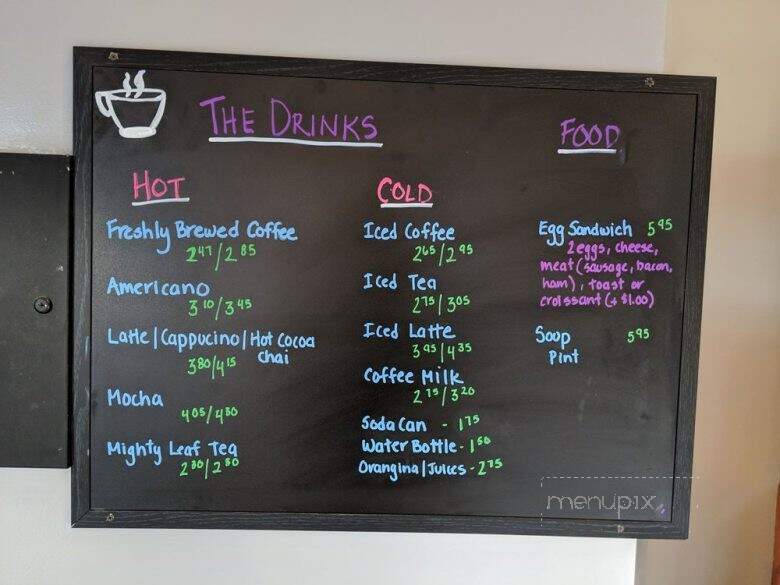 THE DRINKS
HOT
Freshly Brewed Coffee
2.47/2.85
Americano
3.10/3.45
Latte|Cappucino|Hot Cocoa
chai
3.80/4.15
Mocha
4.05/4.50
Mighty Leaf Tea
COLD
Iced Coffee
2.65/2.95
Iced Tea
2.75/3.05
Iced Latte
3.95/4.35
Coffee Milk
2.75/3.20
Soda Can - 1.75
Water Bottle - 1.50
Orangina|Juices - 2.75
FOOD
Egg Sandwich 5.95
2 eggs, cheese,
meat (sausage, bacon,
ham), toast or
croissant (+ $1.00)
Soup 5.95
Pint
menupix